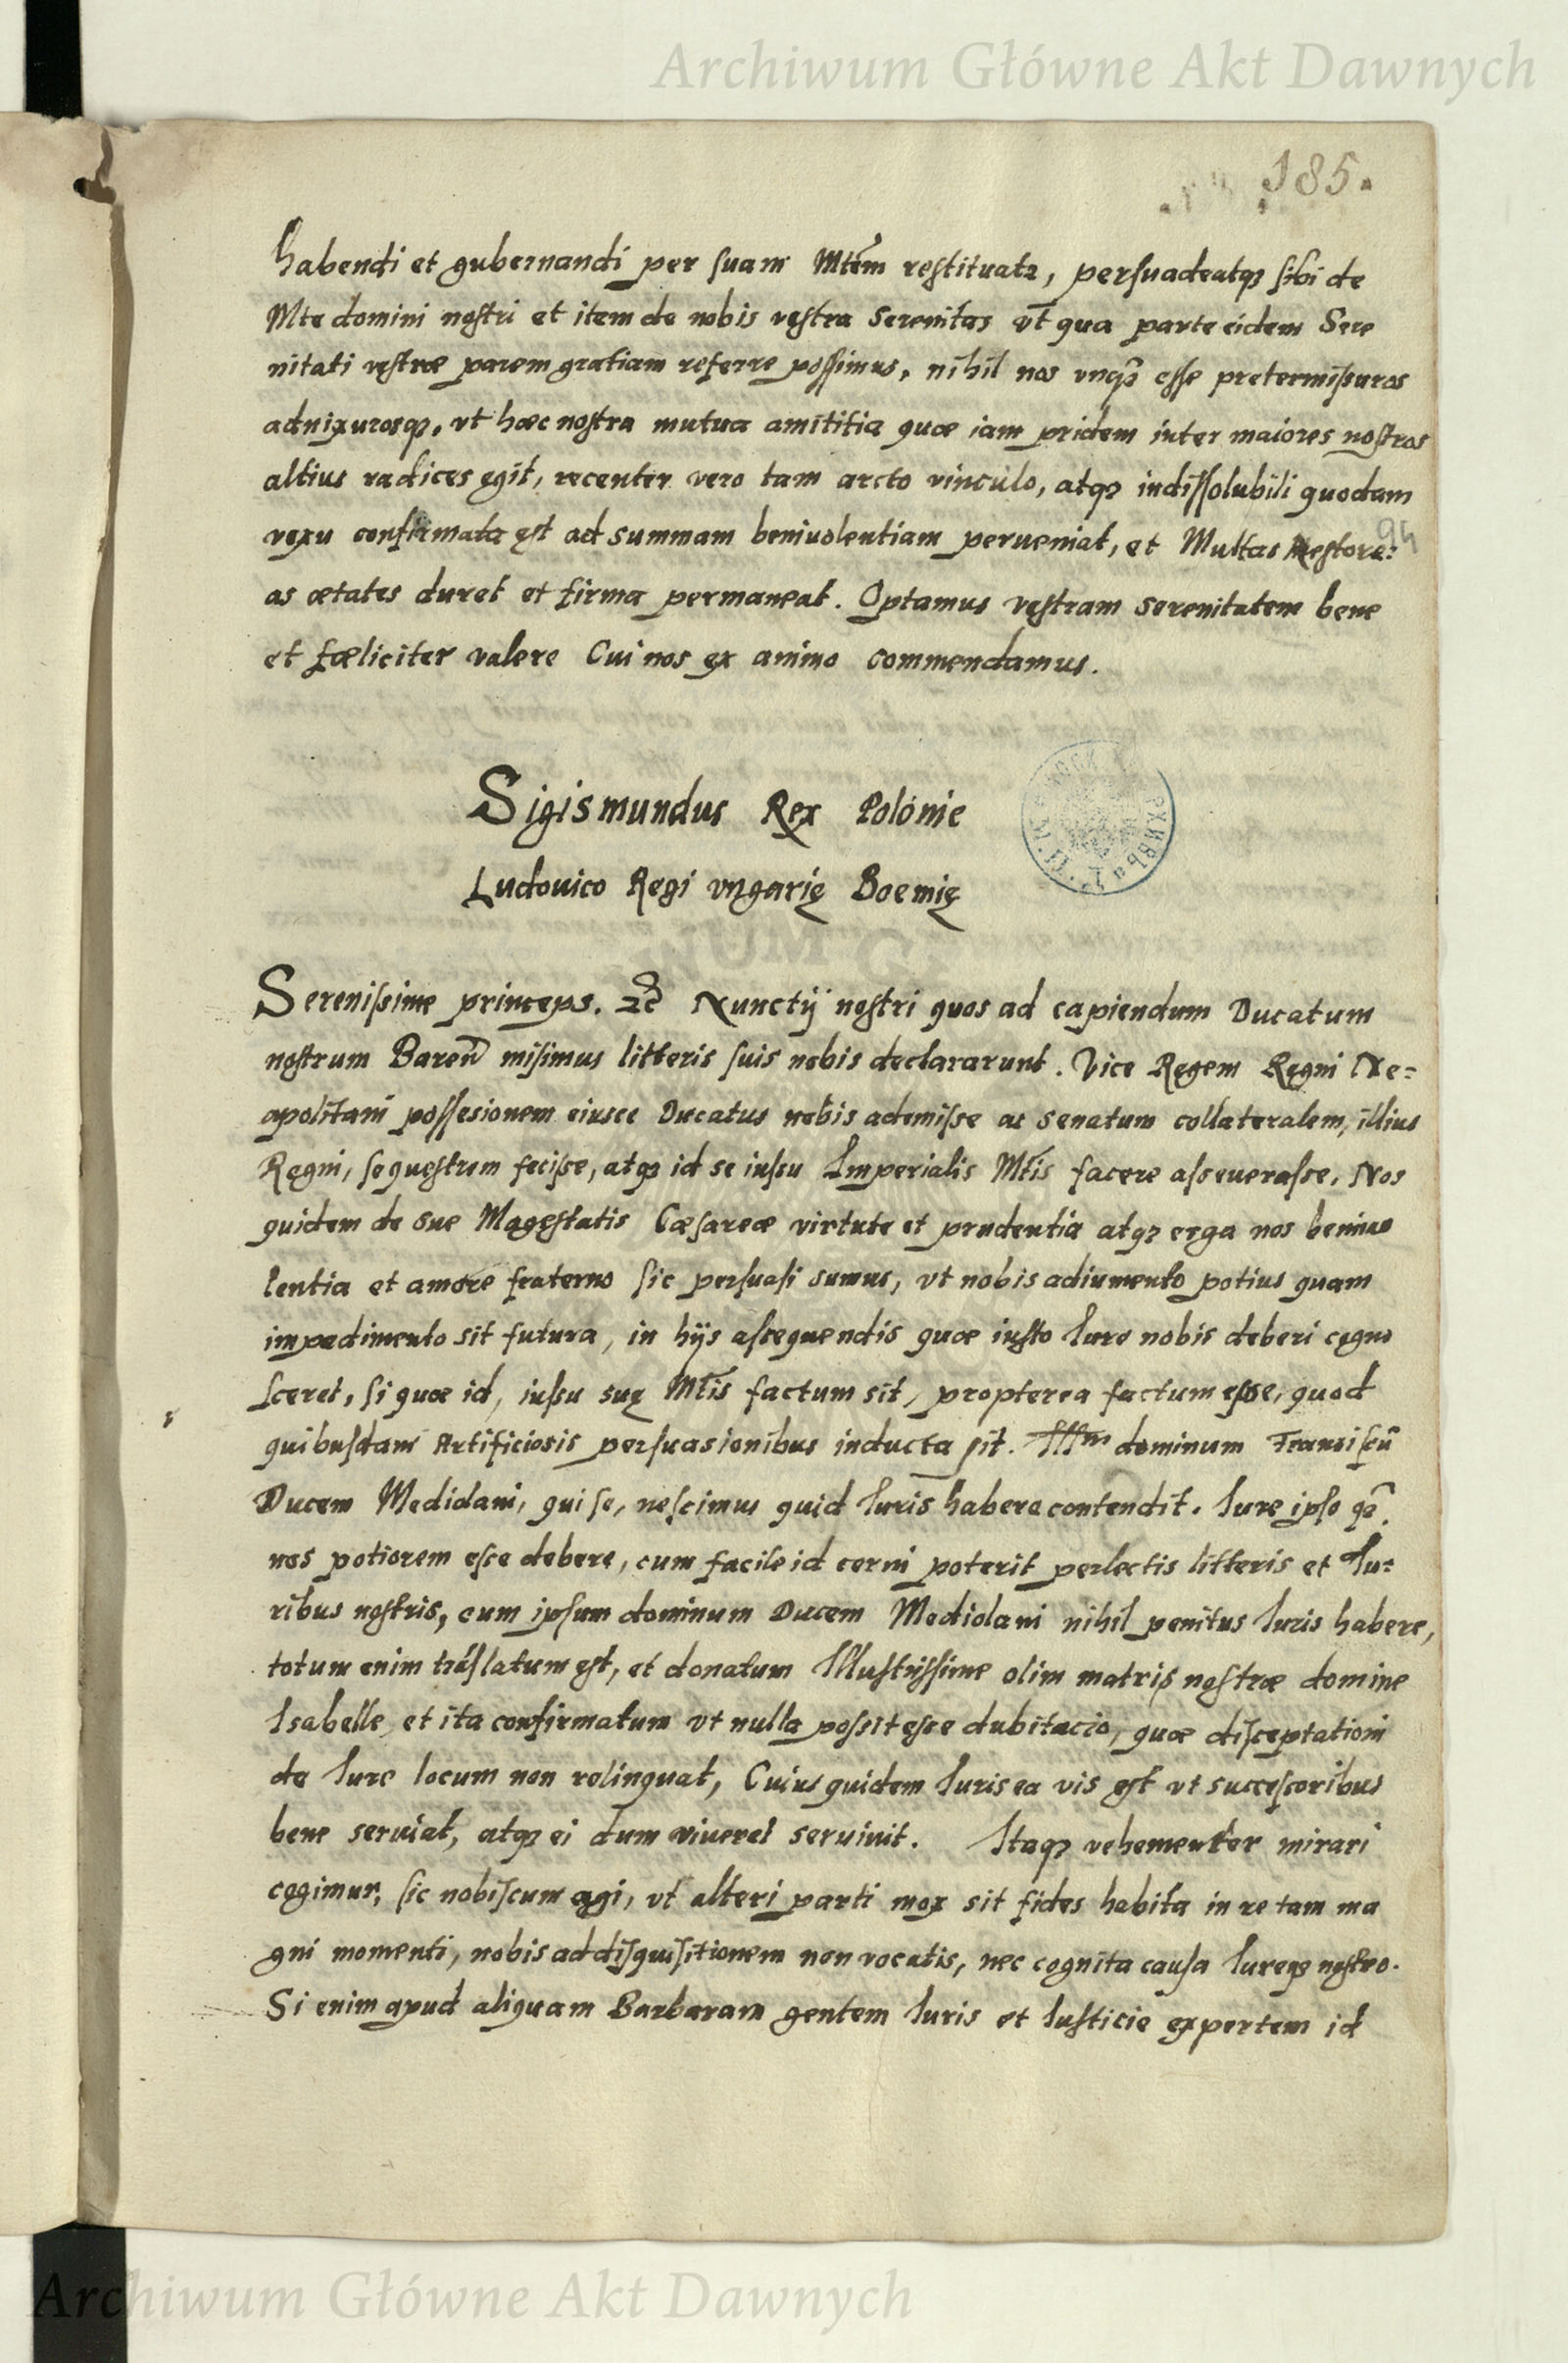 Archiwum Główne Akt Dawnych
185.
habendi et gubernandi per suam Mtem restituatr, persuadeatq sibi de
Mte domini nostri et item de nobis vestra Serenitas vt qua parte eidem Sere
nitati vestræ parem gratiam referre possimus, nihil nos vnq esse pretermissuros
adnixurosq, vt hæc nostra mutua amititia quæ iam pridem inter maiores nostros
altius radices egit, recenter vero tam arcto vinculo, atq indissolubili quodam
nexu confirmata est ad summam beniuolentiam perueniat, et Multas Nestore:
94
as ætates duret et firma permaneat. Optamus vestram serenitatem bene
et fæliciter valere Cui nos ex animo commendamus.
Sigismundus Rex Polonie
Ludouico Regi vngarię Boemię
Serenissime princeps. Nunctij nostri quos ad capiendum Ducatum
nostrum Baren misimus litteris suis nobis declararunt. Vice Regem Regni Ne=
apolitani possesionem eiusce Ducatus nobis ademisse ac senatum collateralem, illius
Regni, sequestrem fecisse, atq id se iussu Imperialis Mtis facere asseuerasse. Nos
quidem de sue Magestatis Cæsareæ virtute et prudentia atq erga nos beniuo
lentia et amore fraterno sic persuasi sumus, vt nobis adiumento potius quam
impedimento sit futura, in hijs assequendis quæ iusto Iure nobis deberi cogno
sceret, si quæ id, iussu suę Mtis factum sit, propterea factum esse, quod
quibusdam Artificiosis persuasionibus inducta sit. Illm dominum Franciscu
Ducem Mediolani, qui se, nescimus quid Iuris habere contendit. Iure ipso
nos potiorem esse debere, cum facile id cerni poterit perlectis litteris et Iu=
ribus nostris, cum ipsum dominum Ducem Mediolani nihil penitus Iuris habere,
totum enim trāslatum est, et donatum Illustrissime olim matris nostræ domine
Isabelle, et ita confirmatum vt nulla possit esse dubitacio, quæ disceptationi
de Iure locum non relinquat, Cuius quidem Iuris ea vis est vt successoribus
bene seruiat, atq ei dum viueret seruiuit. Itaq vehementer mirari
cogimur, sic nobiscum agi, vt alteri parti mox sit fides habita in re tam ma
gni momenti, nobis ad disquisitionem non vocatis, nec cognita causa Iureq nostro.
Si enim apud aliquam Barbaram gentem Iuris et Iusticie expertem id
Archiwum Główne Akt Dawnych